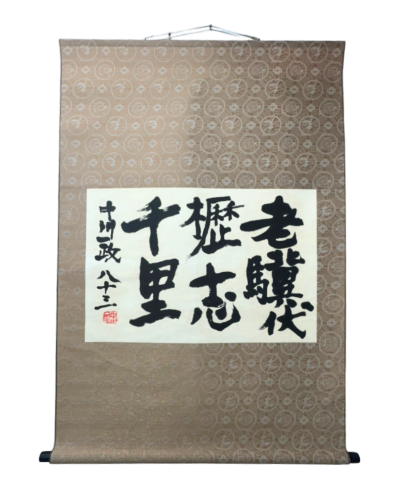 老驥伏
櫪志
千里
中川一政 八十三